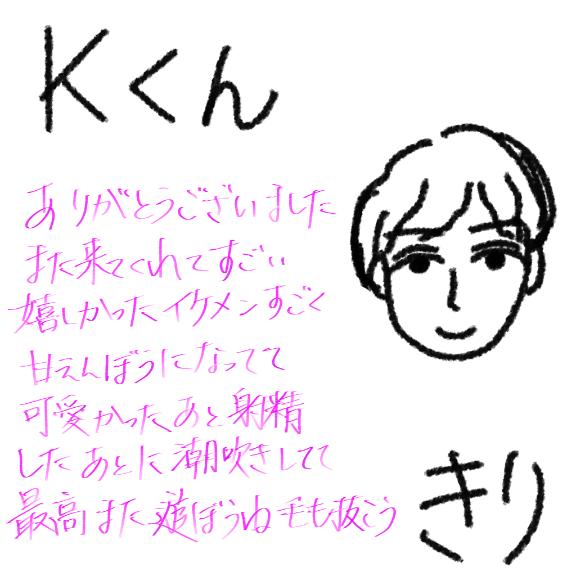 Kくん
ありがとうございました
また来てくれてすごい
嬉しかったイケメンすごく
甘えんぼうになってて
可愛かったあと射精
したあとに潮吹きしてて
最高また遊ぼうね毛も抜こう
きり